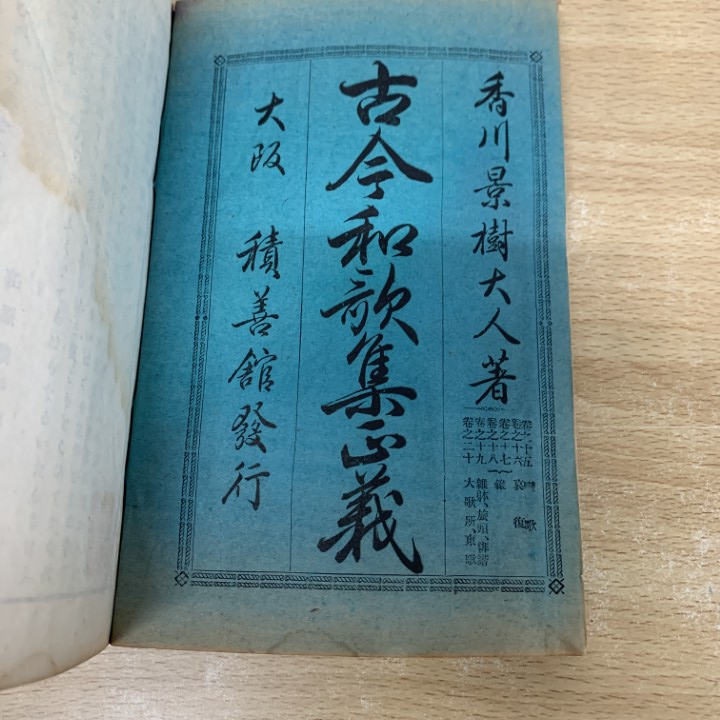 香川景樹大人著
卷之十五
卷之十六
卷之十七
卷之十八
卷之十九
卷之二十
哀傷
雜躰、旋頭、俳諧
大歌所、東歌
古今和歌集正義
大阪 積善館發行